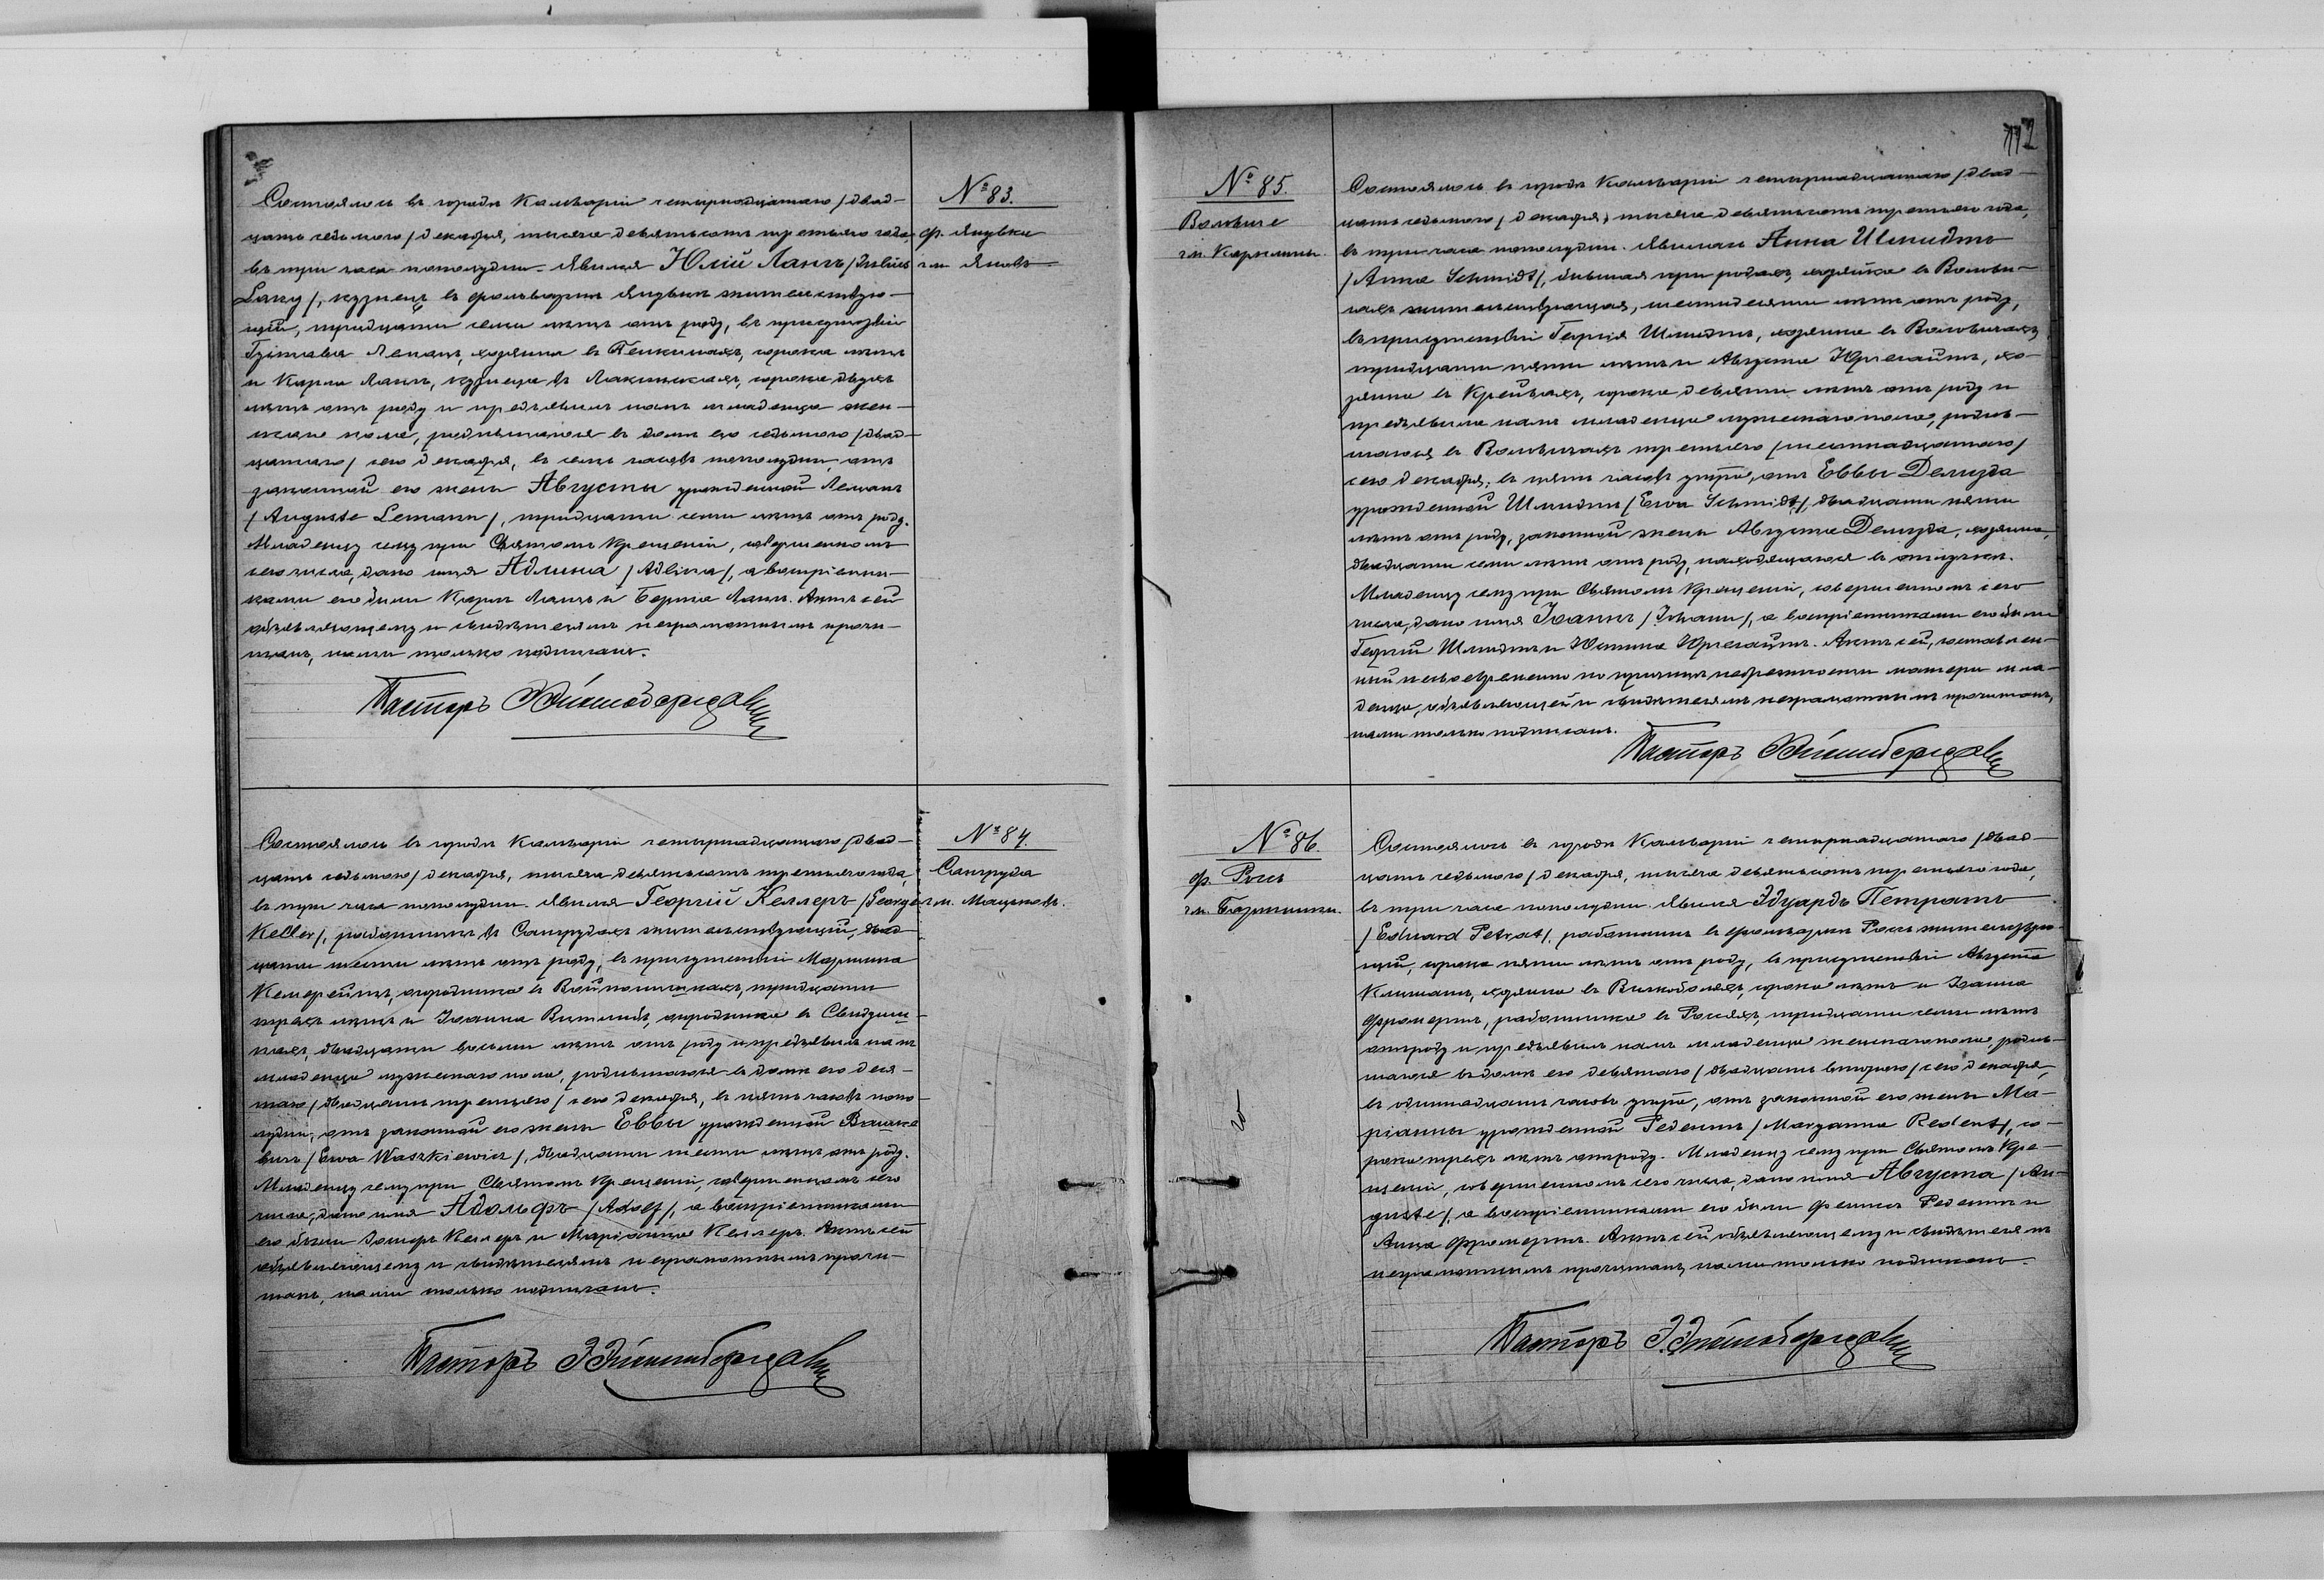 № 83.
ф. Янувка
гм. Яновъ
Состоялось въ городѣ Кальваріи четырнадцатаго /двад-
цать седьмого/ декабря, тысяча девятьсотъ третьяго года,
въ три часа пополудни. Явился Юлій Лангъ /Julius
Lang/, кузнецъ въ фольваркѣ Янувкѣ жительствую-
щій, тридцати семи лѣтъ отъ роду, въ присутствіи
Густава Леманъ, хозяина въ, сорока лѣтъ
и Карла Лангъ, кузнеца въ, сорока двухъ
лѣтъ отъ роду и предъявилъ намъ младенца жен-
скаго пола, родившагося въ домѣ его седьмого /двад-
цатаго/ сего декабря, въ семь часовъ пополудни, отъ
законной его жены Августы урожденной Леманъ
/Auguste Lemann/, тридцати семи лѣтъ отъ роду.
Младенцу сему при Святомъ Крещеніи, совершенномъ
сего числа, дано имя Адлина /Adlina/, а воспріемни-
ками его были Карлъ Лангъ и Берта Лангъ. Актъ сей
объявляющему и свидѣтелямъ неграмотнымъ прочи-
танъ, нами только подписанъ.
Пасторъ
№ 84.
Сангруда
гм.
Состоялось въ городѣ Кальваріи четырнадцатаго /двад-
цать седьмого/ декабря, тысяча девятьсотъ третьяго года,
въ три часа пополудни. Явился Георгій Келлеръ /George
Keller/, работникъ въ Сангрудахъ жительствующій, двад-
цати шести лѣтъ отъ роду, въ присутствіи Мартина
огородника въ тридцати
трехъ лѣтъ и Іоанна огородника въ
двадцати восьми лѣтъ отъ роду и предъявилъ намъ
младенца мужескаго пола, родившагося въ домѣ его деся-
таго /двадцать третьяго/ сего декабря, въ пять часовъ попо-
лудни, отъ законной его жены Еввы урожденной Вашке-
вичъ /Ewa Waszkiewicz/, двадцати шести лѣтъ отъ роду.
Младенцу сему при Святомъ Крещеніи, совершенномъ сего
числа, дано имя Адольфъ /Adolf/, а воспріемниками
его были Келлеръ и Маріанна Келлеръ. Актъ сей
объявляющему и свидѣтелямъ неграмотнымъ прочи-
танъ, нами только подписанъ.
Пасторъ
112
№ 85.
Воловиче
гм.
Состоялось въ городѣ Кальваріи четырнадцатаго /двад-
цать седьмого/ декабря, тысяча девятьсотъ третьяго года,
въ три часа пополудни. Явилась Анна Шмидтъ
/Anna Schmidt/, бывшая при родахъ, хозяйка въ Волови-
чахъ жительствующая, шестидесяти лѣтъ отъ роду,
въ присутствіи Георгія Шмидтъ, хозяина въ Воловичахъ,
тридцати пяти лѣтъ и Августа хо-
зяина въ сорока девяти лѣтъ отъ роду и
предъявила намъ младенца мужескаго пола, родив-
шагося въ Воловичахъ третьяго /шестнадцатаго/
сего декабря, въ пять часовъ утра, отъ Еввы Делизда
урожденной Шмидтъ /Ewa Schmidt/, двадцати пяти
лѣтъ отъ роду, законной жены Августа Делизда, хозяина,
двадцати семи лѣтъ отъ роду, находящагося въ отлучкѣ.
Младенцу сему при Святомъ Крещеніи, совершенномъ сего
числа, дано имя Іоаннъ /Johann/, а воспріемниками его были
Георгій Шмидтъ и Актъ сей, составлен-
ный несвоевременно по причинѣ матери мла-
денца, объявляющей и свидѣтелямъ неграмотнымъ прочитанъ,
нами только подписанъ.
Пасторъ
№ 86.
ф. Рось
гм.
Состоялось въ городѣ Кальваріи четырнадцатаго /двад-
цать седьмого/ декабря, тысяча девятьсотъ третьяго года,
въ три часа пополудни. Явился Эдуардъ Петратъ
/Eduard Petrat/, работникъ въ фольваркѣ Рось жительствую-
щій, сорока пяти лѣтъ отъ роду, въ присутствіи Августа
хозяина въ сорока лѣтъ и Іоанна
Фромертъ, работника въ тридцати семи лѣтъ
отъ роду и предъявилъ намъ младенца женскаго пола, родив-
шагося въ домѣ его девятаго /двадцать второго/ сего декабря,
въ одиннадцать часовъ утра, отъ законной его жены Ма-
ріанны урожденной Редентъ /Maryanna Redent/, со-
рока трехъ лѣтъ отъ роду. Младенцу сему при Святомъ Кре-
щеніи, совершенномъ сего числа, дано имя Августа /Au-
guste/, а воспріемниками его были Редентъ и
Анна Фромертъ. Актъ сей объявляющему и свидѣтелямъ
неграмотнымъ прочитанъ, нами только подписанъ.
Пасторъ